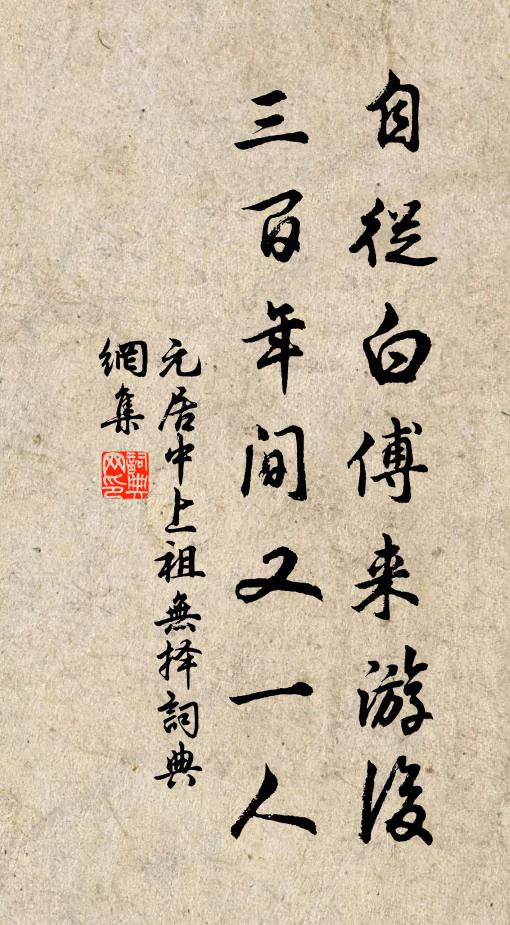 自從白傅来游後
三百年间又一人
元居中上祖無择詞典
網集
詞典
网印